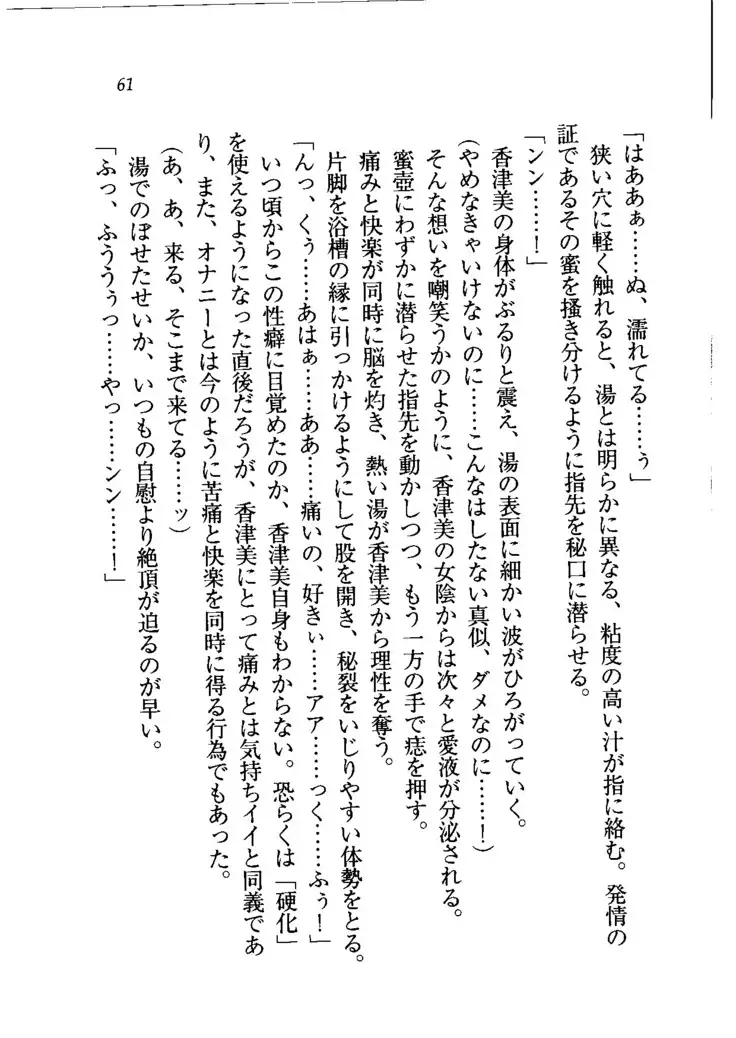 「はああぁ……ぬ、濡れてる……ぅ」
狭い穴に軽く触れると、湯とは明らかに異なる、粘度の高い汁が指に絡む。発情の
証であるその蜜を掻き分けるように指先を秘口に潜らせる。
「ンン……！」
香津美の身体がぶるりと震え、湯の表面に細かい波がひろがっていく。
(やめなきゃいけないのに……こんなはしたない真似、ダメなのに……！)
そんな想いを嘲笑うかのように、香津美の女陰からは次々と愛液が分泌される。
蜜壺にわずかに潜らせた指先を動かしつつ、もう一方の手で痣を押す。
痛みと快楽が同時に脳を灼き、熱い湯が香津美から理性を奪う。
片脚を浴槽の縁に引っかけるようにして股を開き、秘裂をいじりやすい体勢をとる。
「んっ、くぅ……あはぁ……ああ……痛いの、好きぃ……アア……っく……ふぅ！」
いつ頃からこの性癖に目覚めたのか、香津美自身もわからない。恐らくは「硬化」
を使えるようになった直後だろうが、香津美にとって痛みとは気持ちイイと同義であ
り、また、オナニーとは今のように苦痛と快楽を同時に得る行為でもあった。
(あ、あ、来る、そこまで来てる……ッ)
湯でのぼせたせいか、いつもの自慰より絶頂が迫るのが早い。
「ふっ、ふううぅっ……やっ……ンン……！」
61